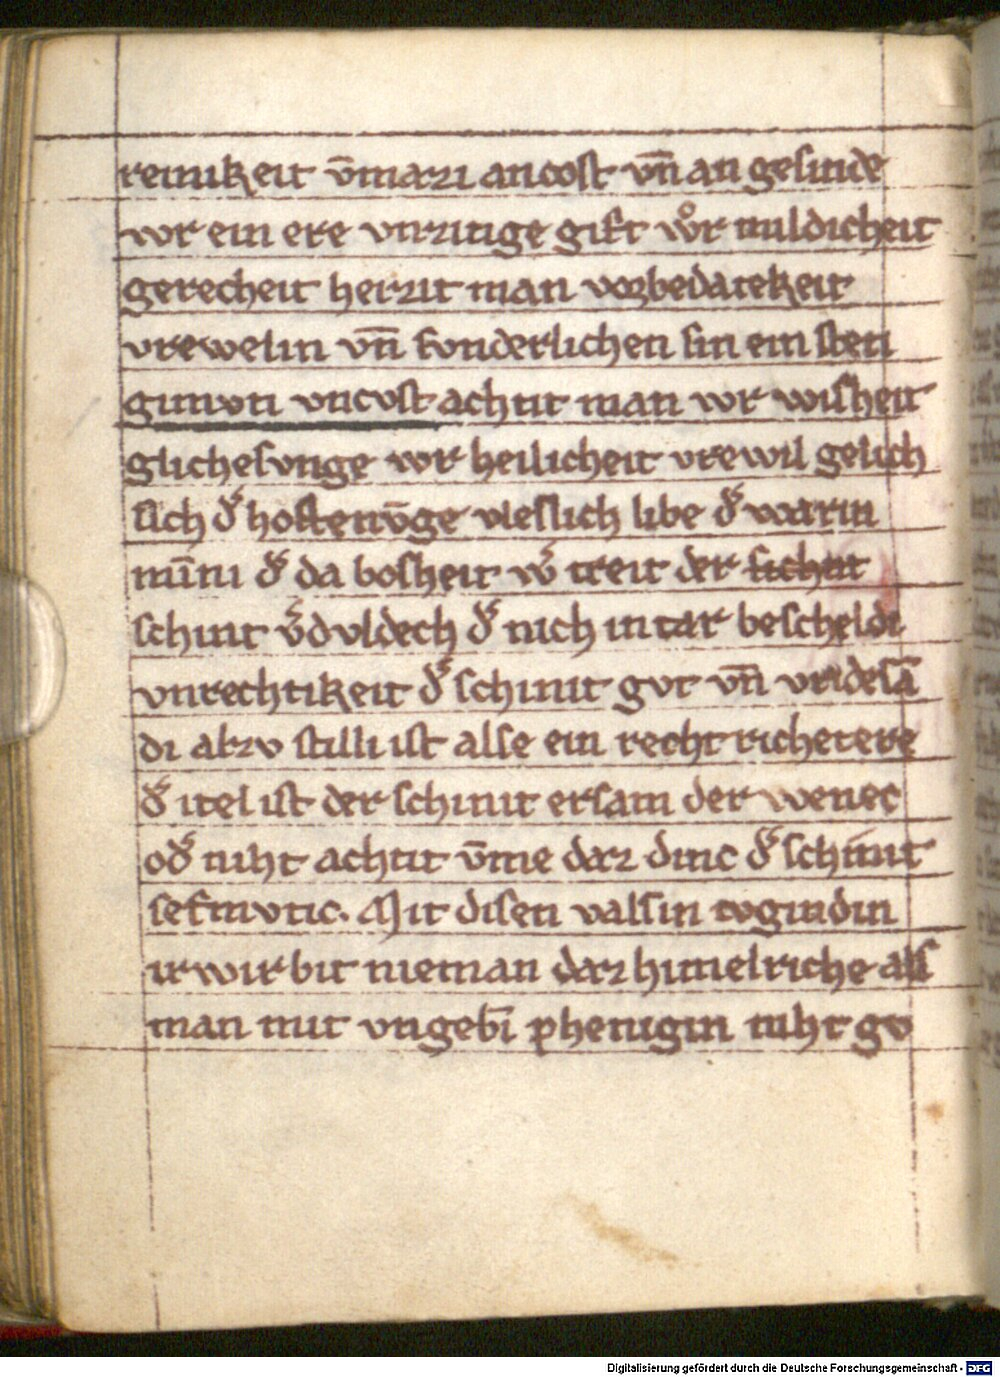 reinikeit v̄mazi ancost vn̄ an gesinde
vvr ein ere vnzitige gift vv̊r mildicheit
gerecheit herzit man vorbedatekeit
vrewelin vn̄ sonderlichen sin ein steti
gimvoti vncvst achtit man vvr wisheit
glichesvnge vvr heilicheit vrewil gelich
sich d᷑ hoffenv̄ge vleslich libe d᷑ warin
mīni d᷑ da bosheit v᷑ treit der
schinit v᷑dvldech d᷑ nich intar bescheldi
vnrechtikeit d᷑ schinit gvt vn̄ vridesā
di alzv stilli ist alse ein recht richetere
d᷑ itel ist der schinit ersam der wenec
od᷑ niht achtit v̄me daz dinc d᷑ schinit
sefmvtic. Mit disen valsin tvgindin
irwirbit nieman daz himelriche als
man mit vngebī phenigin niht gv
Digitalisierung gefördert durch die Deutsche Forschungsgemeinschaft - DFG